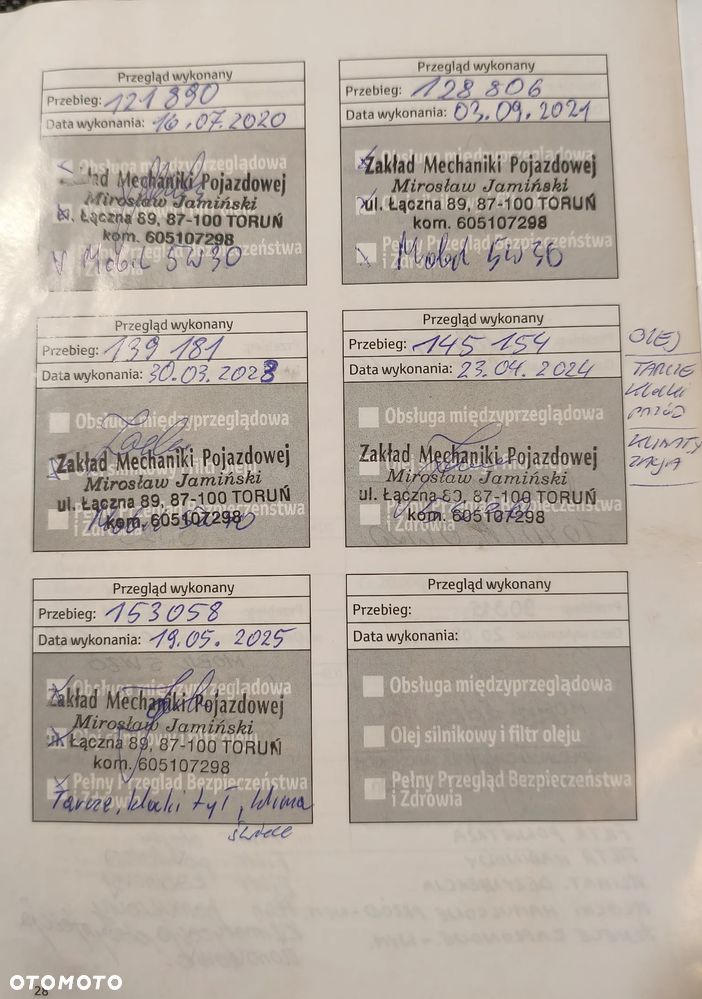 Przegląd wykonany
Przebieg: 121 890
Data wykonania: 16.07.2020
Obsługa międzyprzeglądowa
Zakład Mechaniki Pojazdowej
Mirosław Jamiński
ul. Łączna 89, 87-100 TORUŃ
kom. 605107298
Mobil 5W30
Przegląd wykonany
Przebieg: 128 806
Data wykonania: 03.09.2021
Zakład Mechaniki Pojazdowej
Mirosław Jamiński
ul. Łączna 89, 87-100 TORUŃ
kom. 605107298
Pełny Przegląd Bezpieczeństwa
i Zdrowia
Mobil 5W30
Przegląd wykonany
Przebieg: 139 181
Data wykonania: 30.03.2023
Obsługa międzyprzeglądowa
Zakład Mechaniki Pojazdowej
Mirosław Jamiński
ul. Łączna 89, 87-100 TORUŃ
kom. 605107298
i Zdrowia
Przegląd wykonany
Przebieg: 145 154
Data wykonania: 23.04.2024
Obsługa międzyprzeglądowa
Zakład Mechaniki Pojazdowej
Mirosław Jamiński
ul. Łączna 89, 87-100 TORUŃ
kom. 605107298
i Zdrowia
OLEJ
TARCZE
Klocki
PRZÓD
KLIMATY
ZACJA
Przegląd wykonany
Przebieg: 153058
Data wykonania: 19.05.2025
Obsługa międzyprzeglądowa
Zakład Mechaniki Pojazdowej
Mirosław Jamiński
ul. Łączna 89, 87-100 TORUŃ
kom. 605107298
Pełny Przegląd Bezpieczeństwa
i Zdrowia
Tarcze, klocki tył, klima
świece
Przegląd wykonany
Przebieg:
Data wykonania:
Obsługa międzyprzeglądowa
Olej silnikowy i filtr oleju
Pełny Przegląd Bezpieczeństwa
i Zdrowia
28
OTOMOTO